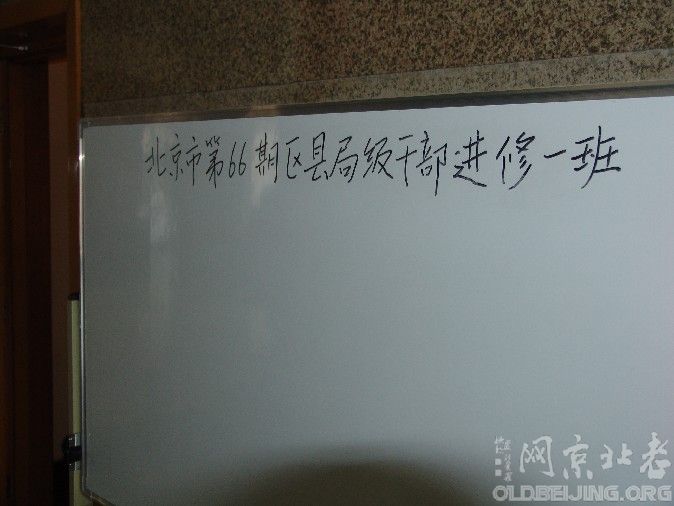 北京市第66期区县局级干部进修一班
网京北老
OLDBEIJING.ORG